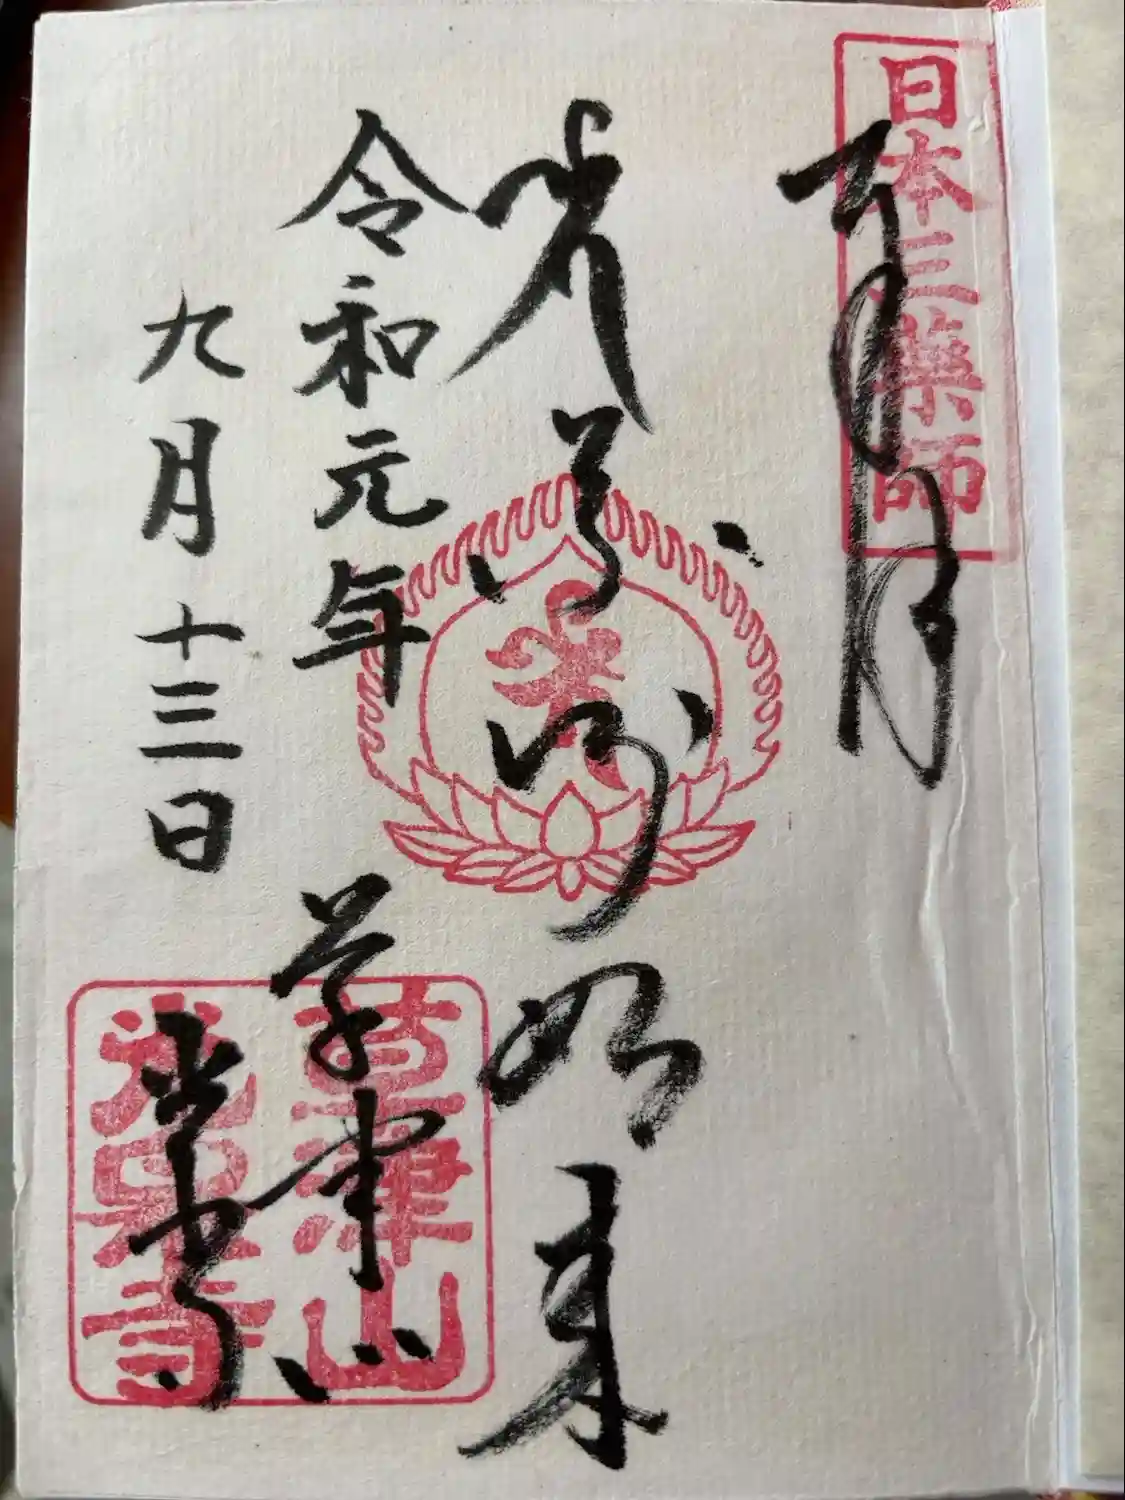 日本三薬師
如来
令和元年
九月十三日
草津山
光泉寺
草津山
光泉寺